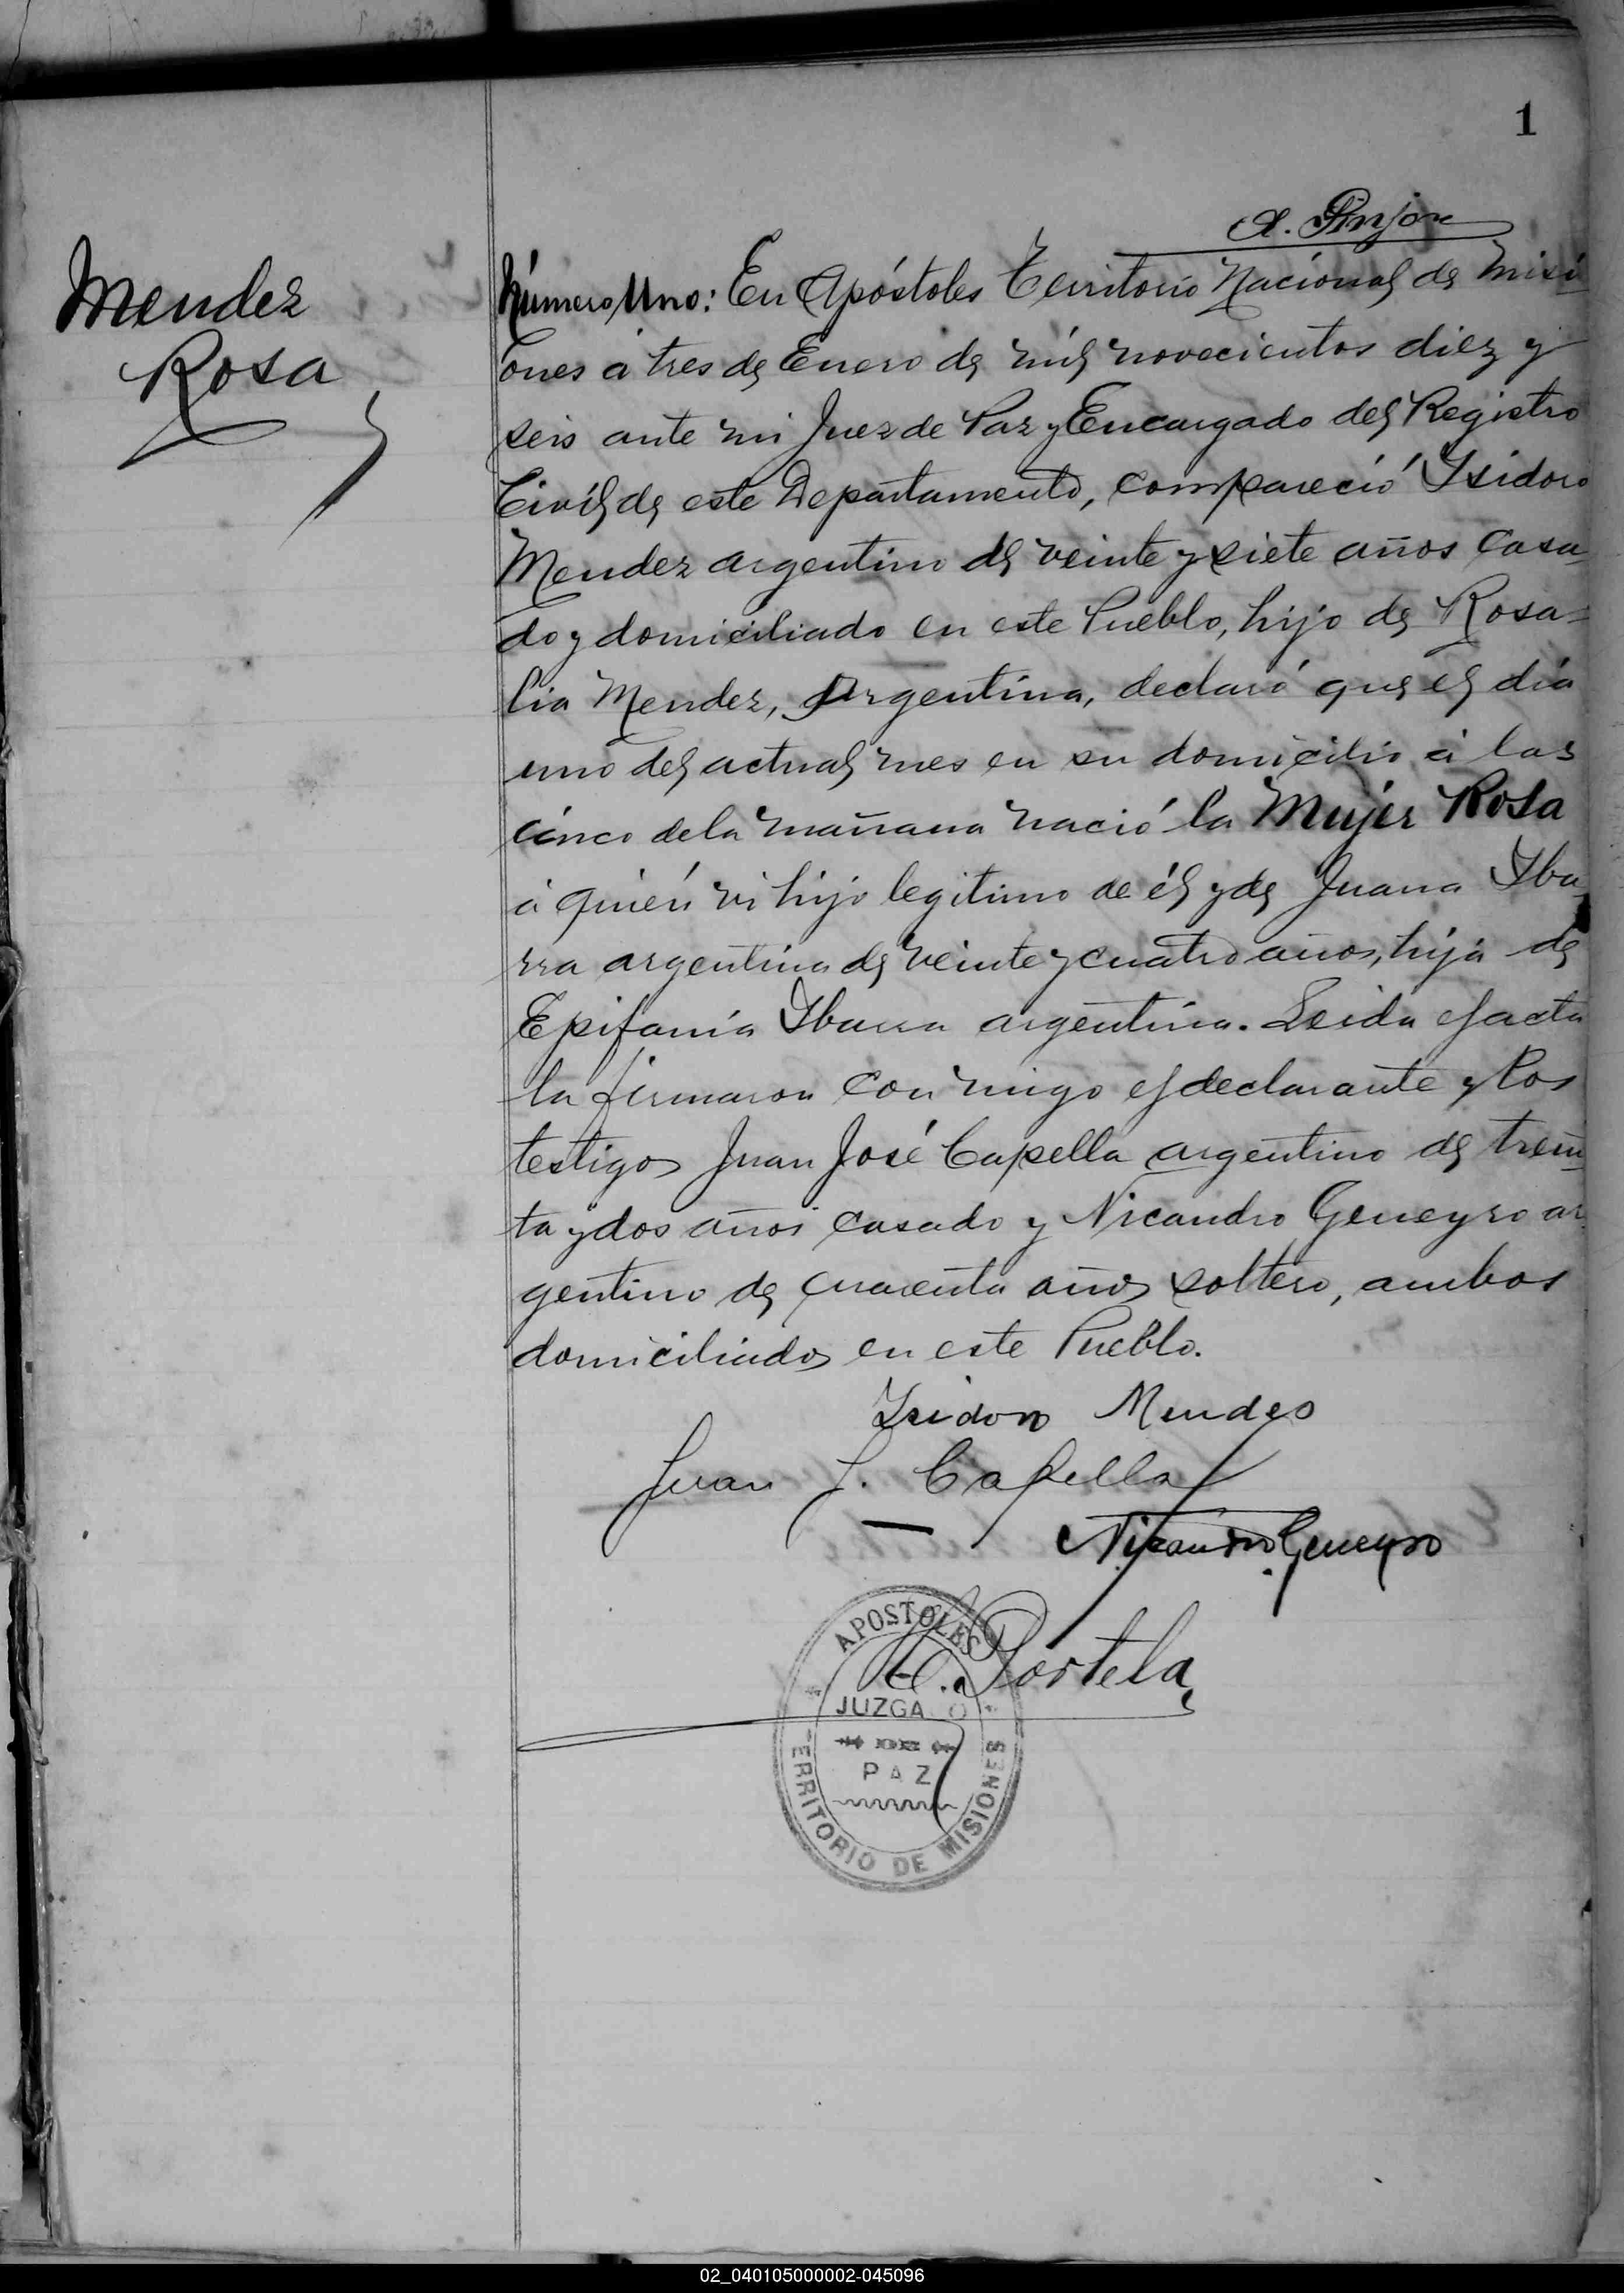 1
A. Pinjon
Mendez
Rosa
Número Uno: En Apóstoles Territorio Nacional de Misi
ones á tres de Enero de mil novecientos diez y
seis ante mi Juez de Paz y Encargado del Registro
Civil de este Departamento, compareció Isidoro
Mendez argentino de veinte y siete años casa
do y domiciliado en este Pueblo, hijo de Rosa=
lia Mendez, Argentina, declaró que el dia
uno del actual mes en su domicilio á las
cinco de la mañana nació la Mujer Rosa
á quién vi hijo legitimo de él y de Juana Yba
rra argentina de veinte y cuatro años, hija de
Epifania Ybarra argentina. Leida el acta
la firmaron con migo el declarante y los
testigos Juan José Capella argentino de trein
ta y dos años casado y Nicandro Geneyro ar
gentino de cuarenta años soltero, ambos
domiciliados en este Pueblo.
Isidoro Mendes
Juan J. Capella
Nicandro Geneyro
Portela
APOSTOLES
JUZGADO
PAZ
TERRITORIO DE MISIONES
02_040105000002-045096